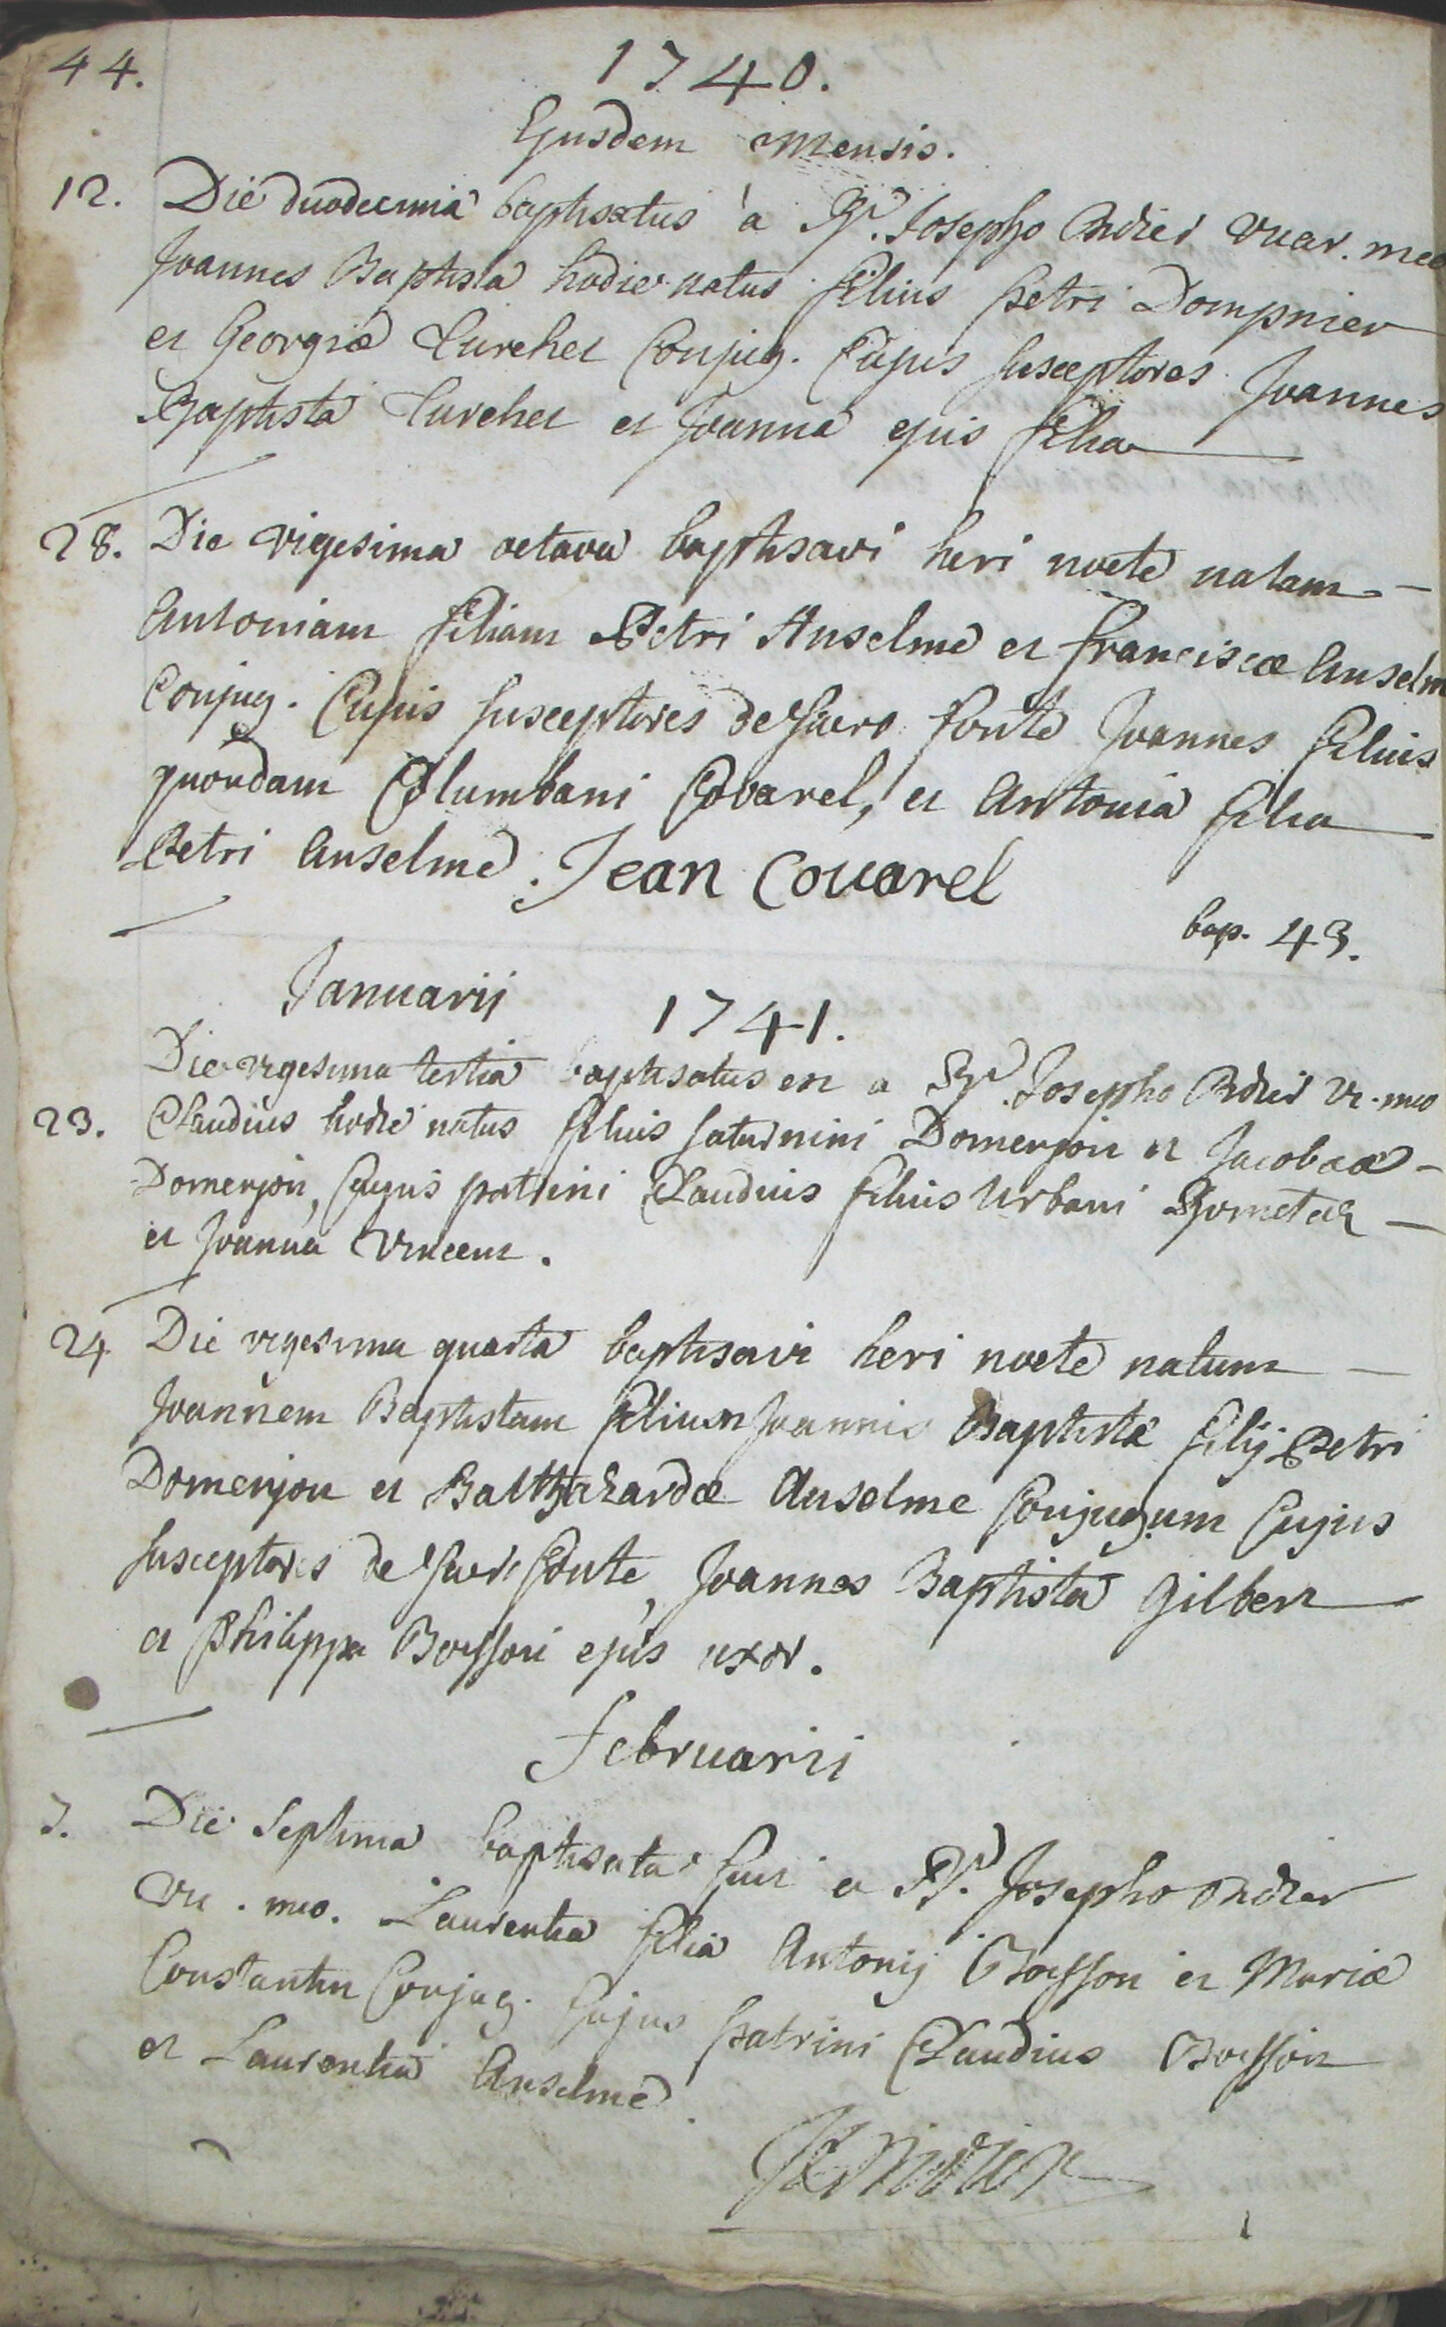 44.
1740.
Ejusdem mensis.
12. Die duodecima baptisatus a Rd. Josepho Didier vicar. meo
Joannes Baptista hodie natus filius petri Dompnier
et Georgiæ Turchet Conjug. Cujus susceptores Joannes
Baptista Turchet et Joanna ejus filia
28. Die vigesima octava baptisavi heri nocte natam
Antoniam filiam Petri Anselme et franciscæ Anselm
Conjug. Cujus susceptores de sacro fonte Joannes filius
quondam Columbani Covarel, et Antonia filia
Petri Anselme. Jean Couarel
bap. 43.
Januarii 1741.
Die vigesima tertia baptisatus est a Rd. Josepho Didier vi. meo
23. Claudius hodie natus filius saturnini Domenjon et Jacobææ
Domenjon, Cujus patrini Claudius filius Urbani
et Joanna Vincent.
24 Die vigesima quarta baptisavi heri nocte natum
Joannem Baptistam filium Joannis Baptistæ filij Petri
Domenjon et Balthazardæ Anselme Conjugum Cujus
susceptores de sacro fonte, Joannes Baptista Gilbert
et Philippa Boisson ejus uxor.
februarii
7. Die septima baptisata fuit a Rd. Josepho Didier
vic. meo. Laurentia filia Antonij Boisson et Mariæ
Constantin Conjug. Cujus patrini Claudius Boisson
et Laurentia Anselme.